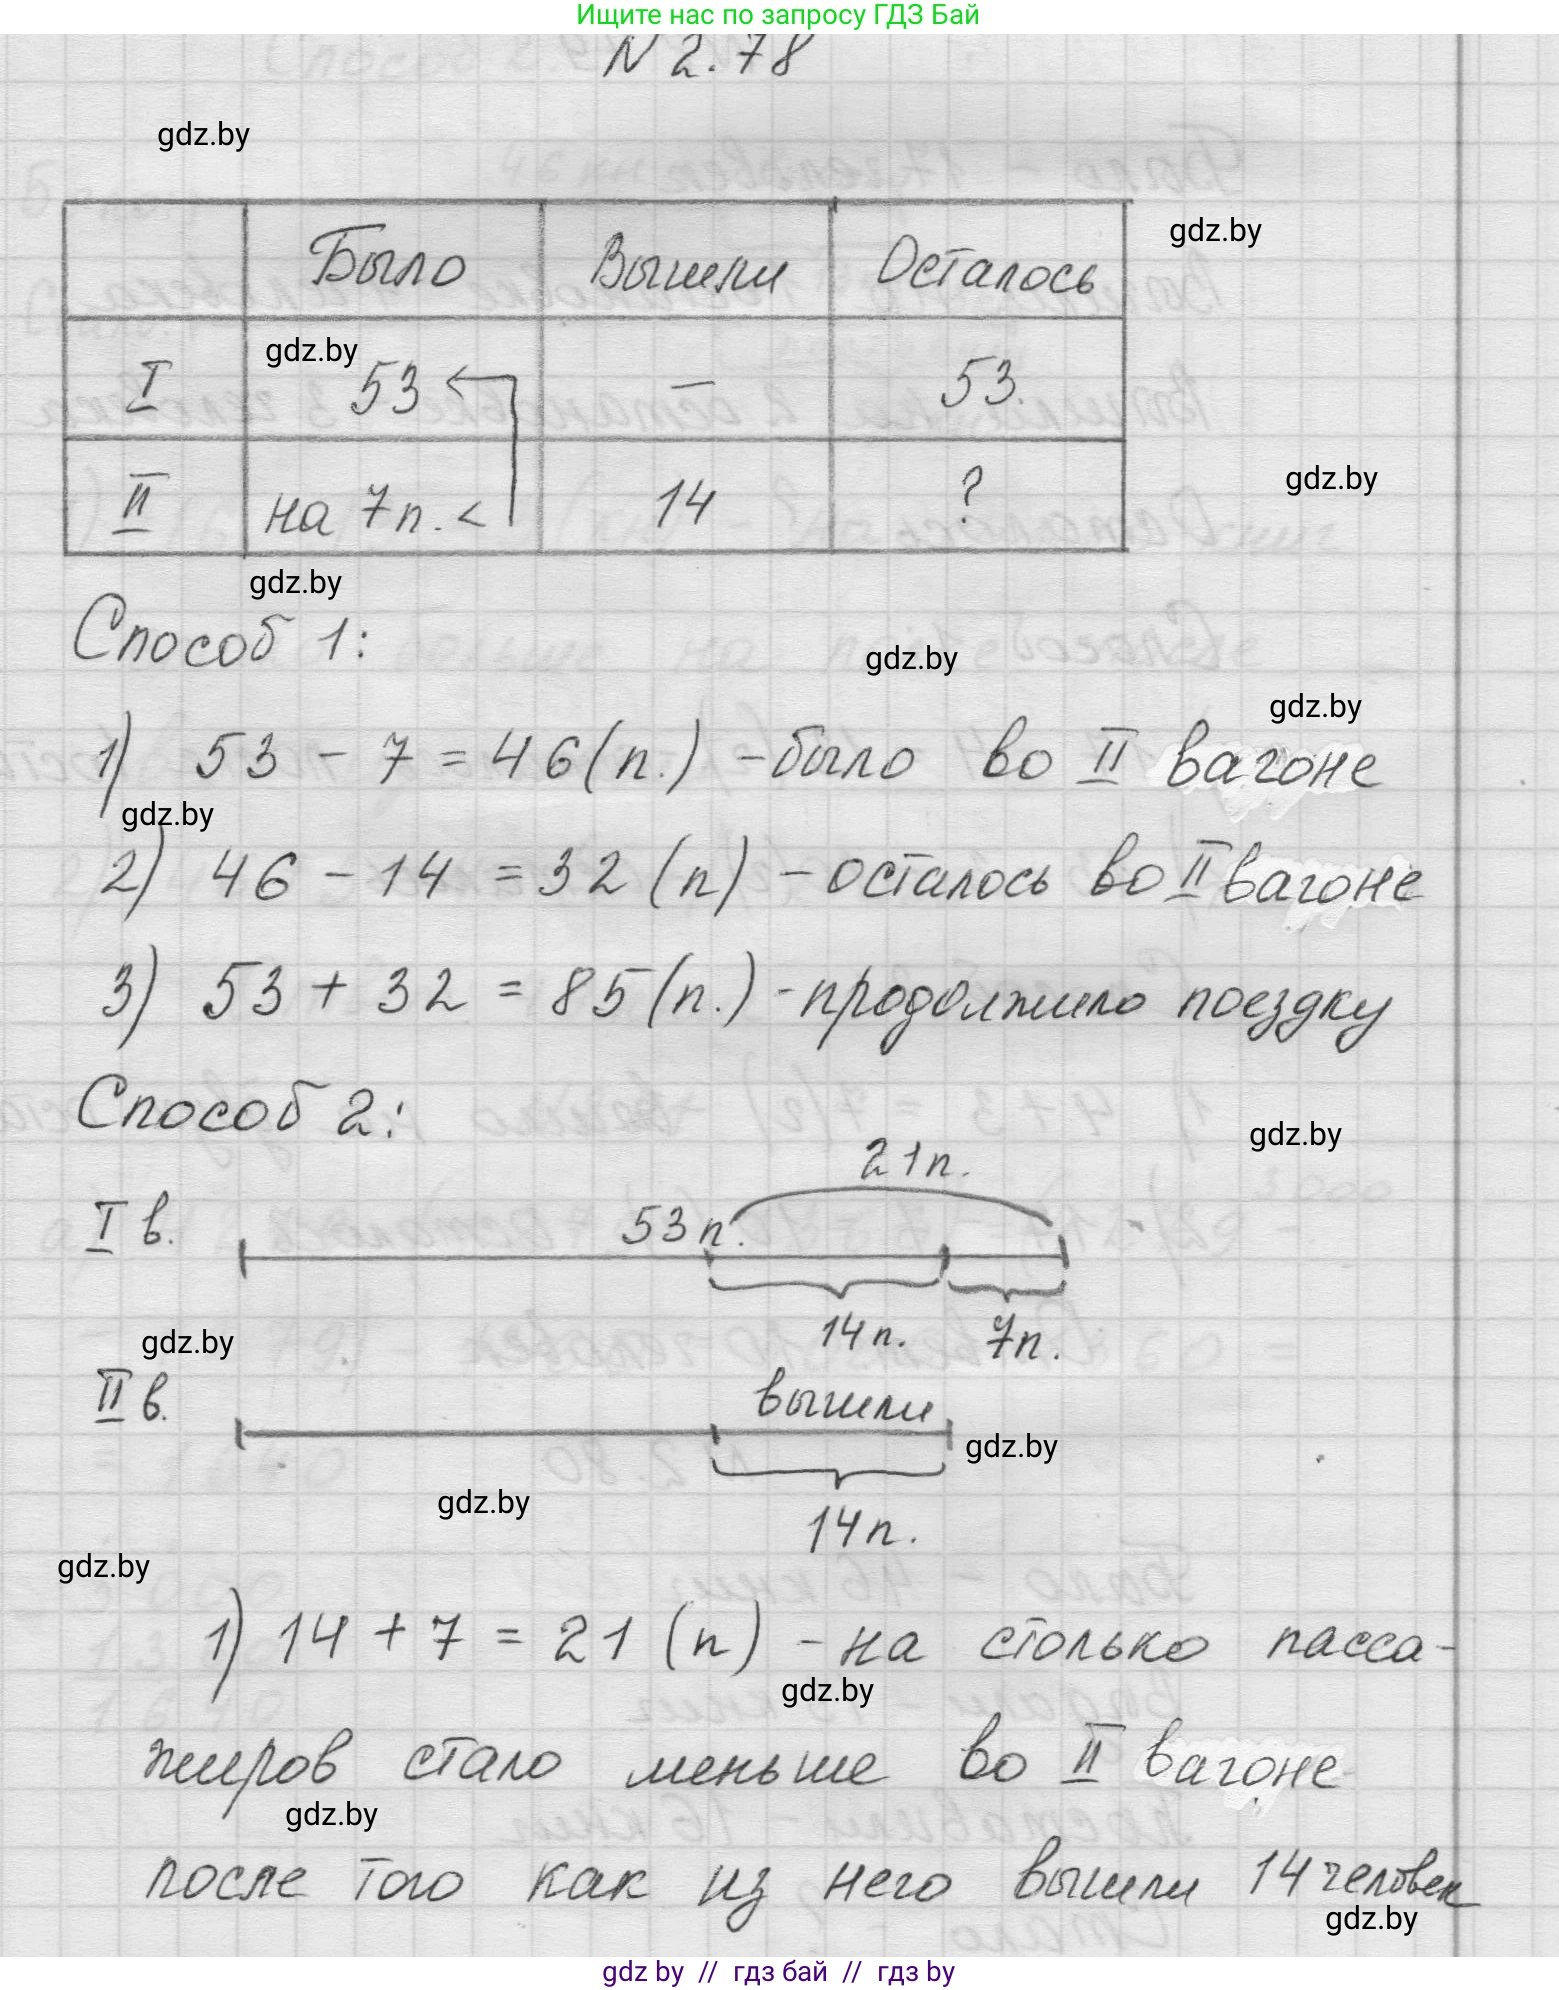 Ищите нас по запросу ГДЗ Бай
N 2.78
gdz.by
gdz.by
Было Вышли Осталось
gdz.by
I 53 — 53.
gdz.by
II на 7п. < 14 ?
gdz.by
Способ 1:
gdz.by
gdz.by
1) 53 - 7 = 46 (п.) - было во II вагоне
gdz.by
2) 46 - 14 = 32 (п) - осталось во II вагоне
3) 53 + 32 = 85 (п.) - продолжило поездку
Способ 2:
gdz.by
21п.
I в. 53п.
14п. 7п.
gdz.by
II в. вышли
gdz.by
gdz.by
14п.
gdz.by
1) 14 + 7 = 21 (п) - на столько пасса-
gdz.by
жиров стало меньше во II вагоне
gdz.by
после того как из него вышли 14 человек
gdz.by
gdz by // гдз бай // гдз by